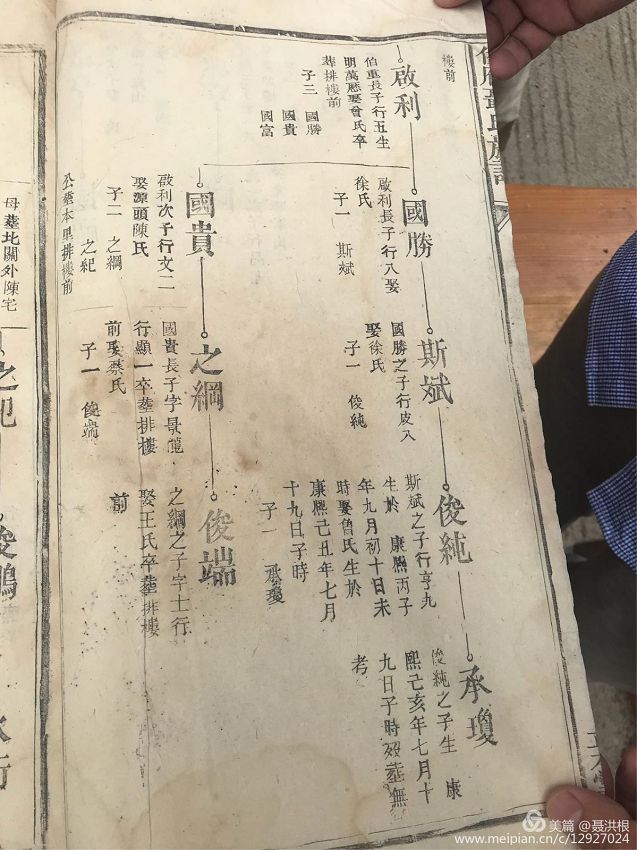 樓前
啟利
伯重長子行五生
明萬厯娶曾氏卒
葬排樓前
子三 國勝
國貴
國富
國勝
啟利長子行八娶
徐氏
子一 斯斌
斯斌
國勝之子行皮八
娶徐氏
子一 俊純
俊純
斯斌之子行亨九
生於 康熙丙子
年九月初十日未
時娶魯氏生於
康熙己丑年七月
十九日子時
子一 承瓊
承瓊
俊純之子生 康
熙己亥年七月十
九日子時歿葬無
考
國貴
啟利次子行文二
娶源頭陳氏
子二 之綱
之紀
公葬本里排樓前
母葬北關外陳宅
之綱
國貴長子字景龍
行顯一卒葬排樓
前娶蔡氏
子一 俊端
俊端
之綱之子字士行
娶王氏卒葬排樓
前
之紀
美篇 @聂洪根
www.meipian.cn/c/12927024